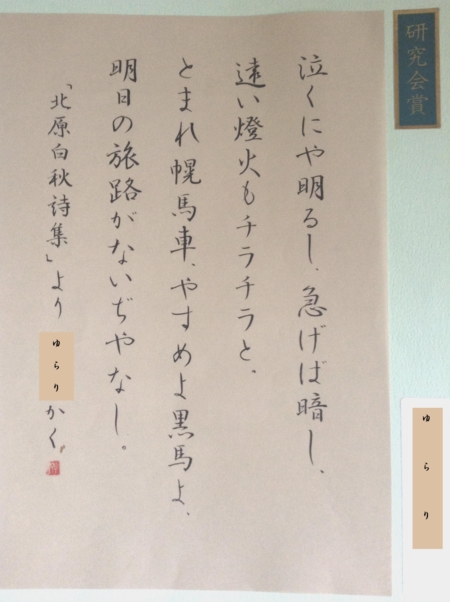 研究会賞
泣くにや明るし、急げば暗し、
遠い燈火もチラチラと、
とまれ幌馬車、やすめよ黒馬よ、
明日の旅路がないぢやなし。
「北原白秋詩集」より
ゆらり かく
ゆらり